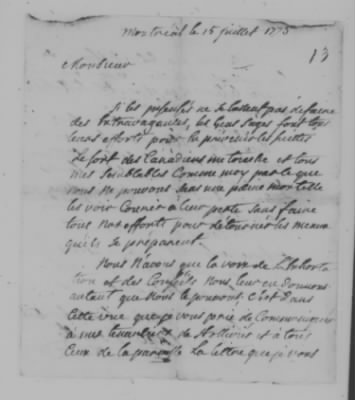 Montréal le 15 juillet 1775
13
Monsieur
Si les insensés ne se lassent pas de faire
des Extravagances, les Gens Sages font tous
leurs efforts pour les suittes
Le sort des Canadiens et tous
mes Semblables Comme moy parce que
nous ne pouvons sans une peine mortelle
les voir Courir à leur perte Sans faire
tous Nos efforts pour detourner les maux
qu'ils se preparent.
Nous N'avons que la voix de l'Exhorta
tion et des Conseils Nous leur en donnons
autant que Nous le pouvons. C'est Dans
Cette vue que je vous prie de Communiquer
à mes tenanciers de et à tous
Ceux de la paroisse La lettre que je vous